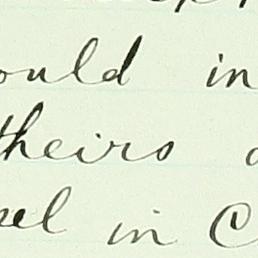 ould in
theirs
el in C